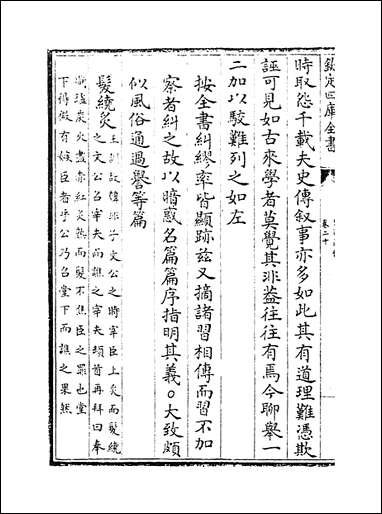 欽定四庫全書
卷二十
時取怨千載夫史傳叙事亦多如此其有道理難憑欺
誣可見如古來學者莫覺其非葢往往有焉今聊舉一
二加以駮難列之如左
按全書糾繆率皆顯跡兹又摘諸習相傳而習不加
察者糾之故以暗惑名篇篇序指明其義○大致頗
似風俗通過譽等篇
髮繞炙
王訓故韓非子文公之時宰臣上炙而髮繞
之文公召宰夫而譙之宰夫頓首再拜曰奉
熾爐炭火盡赤紅炙熟而髮不焦臣之罪也堂
下得微有嫉臣者乎公乃召堂下而譙之果然